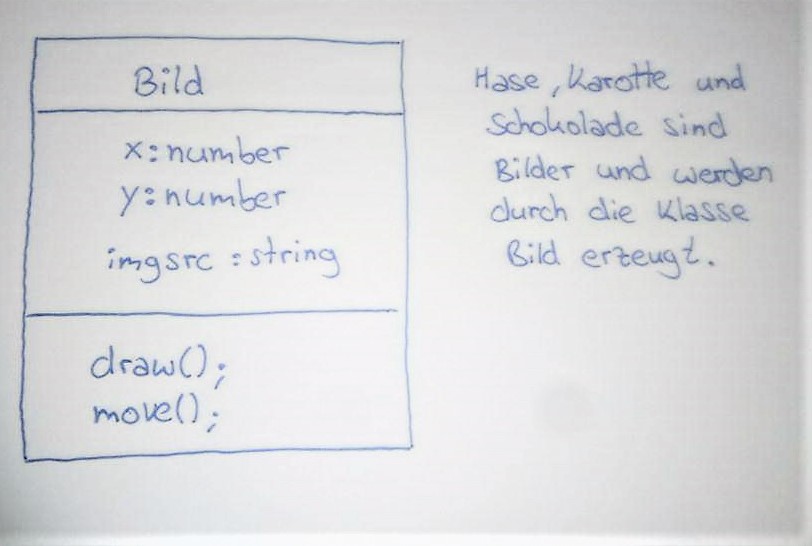 Bild
x:number
y:number
imgsrc : string
draw();
move();
Hase, Karotte und
Schokolade sind
Bilder und werden
durch die Klasse
Bild erzeugt.